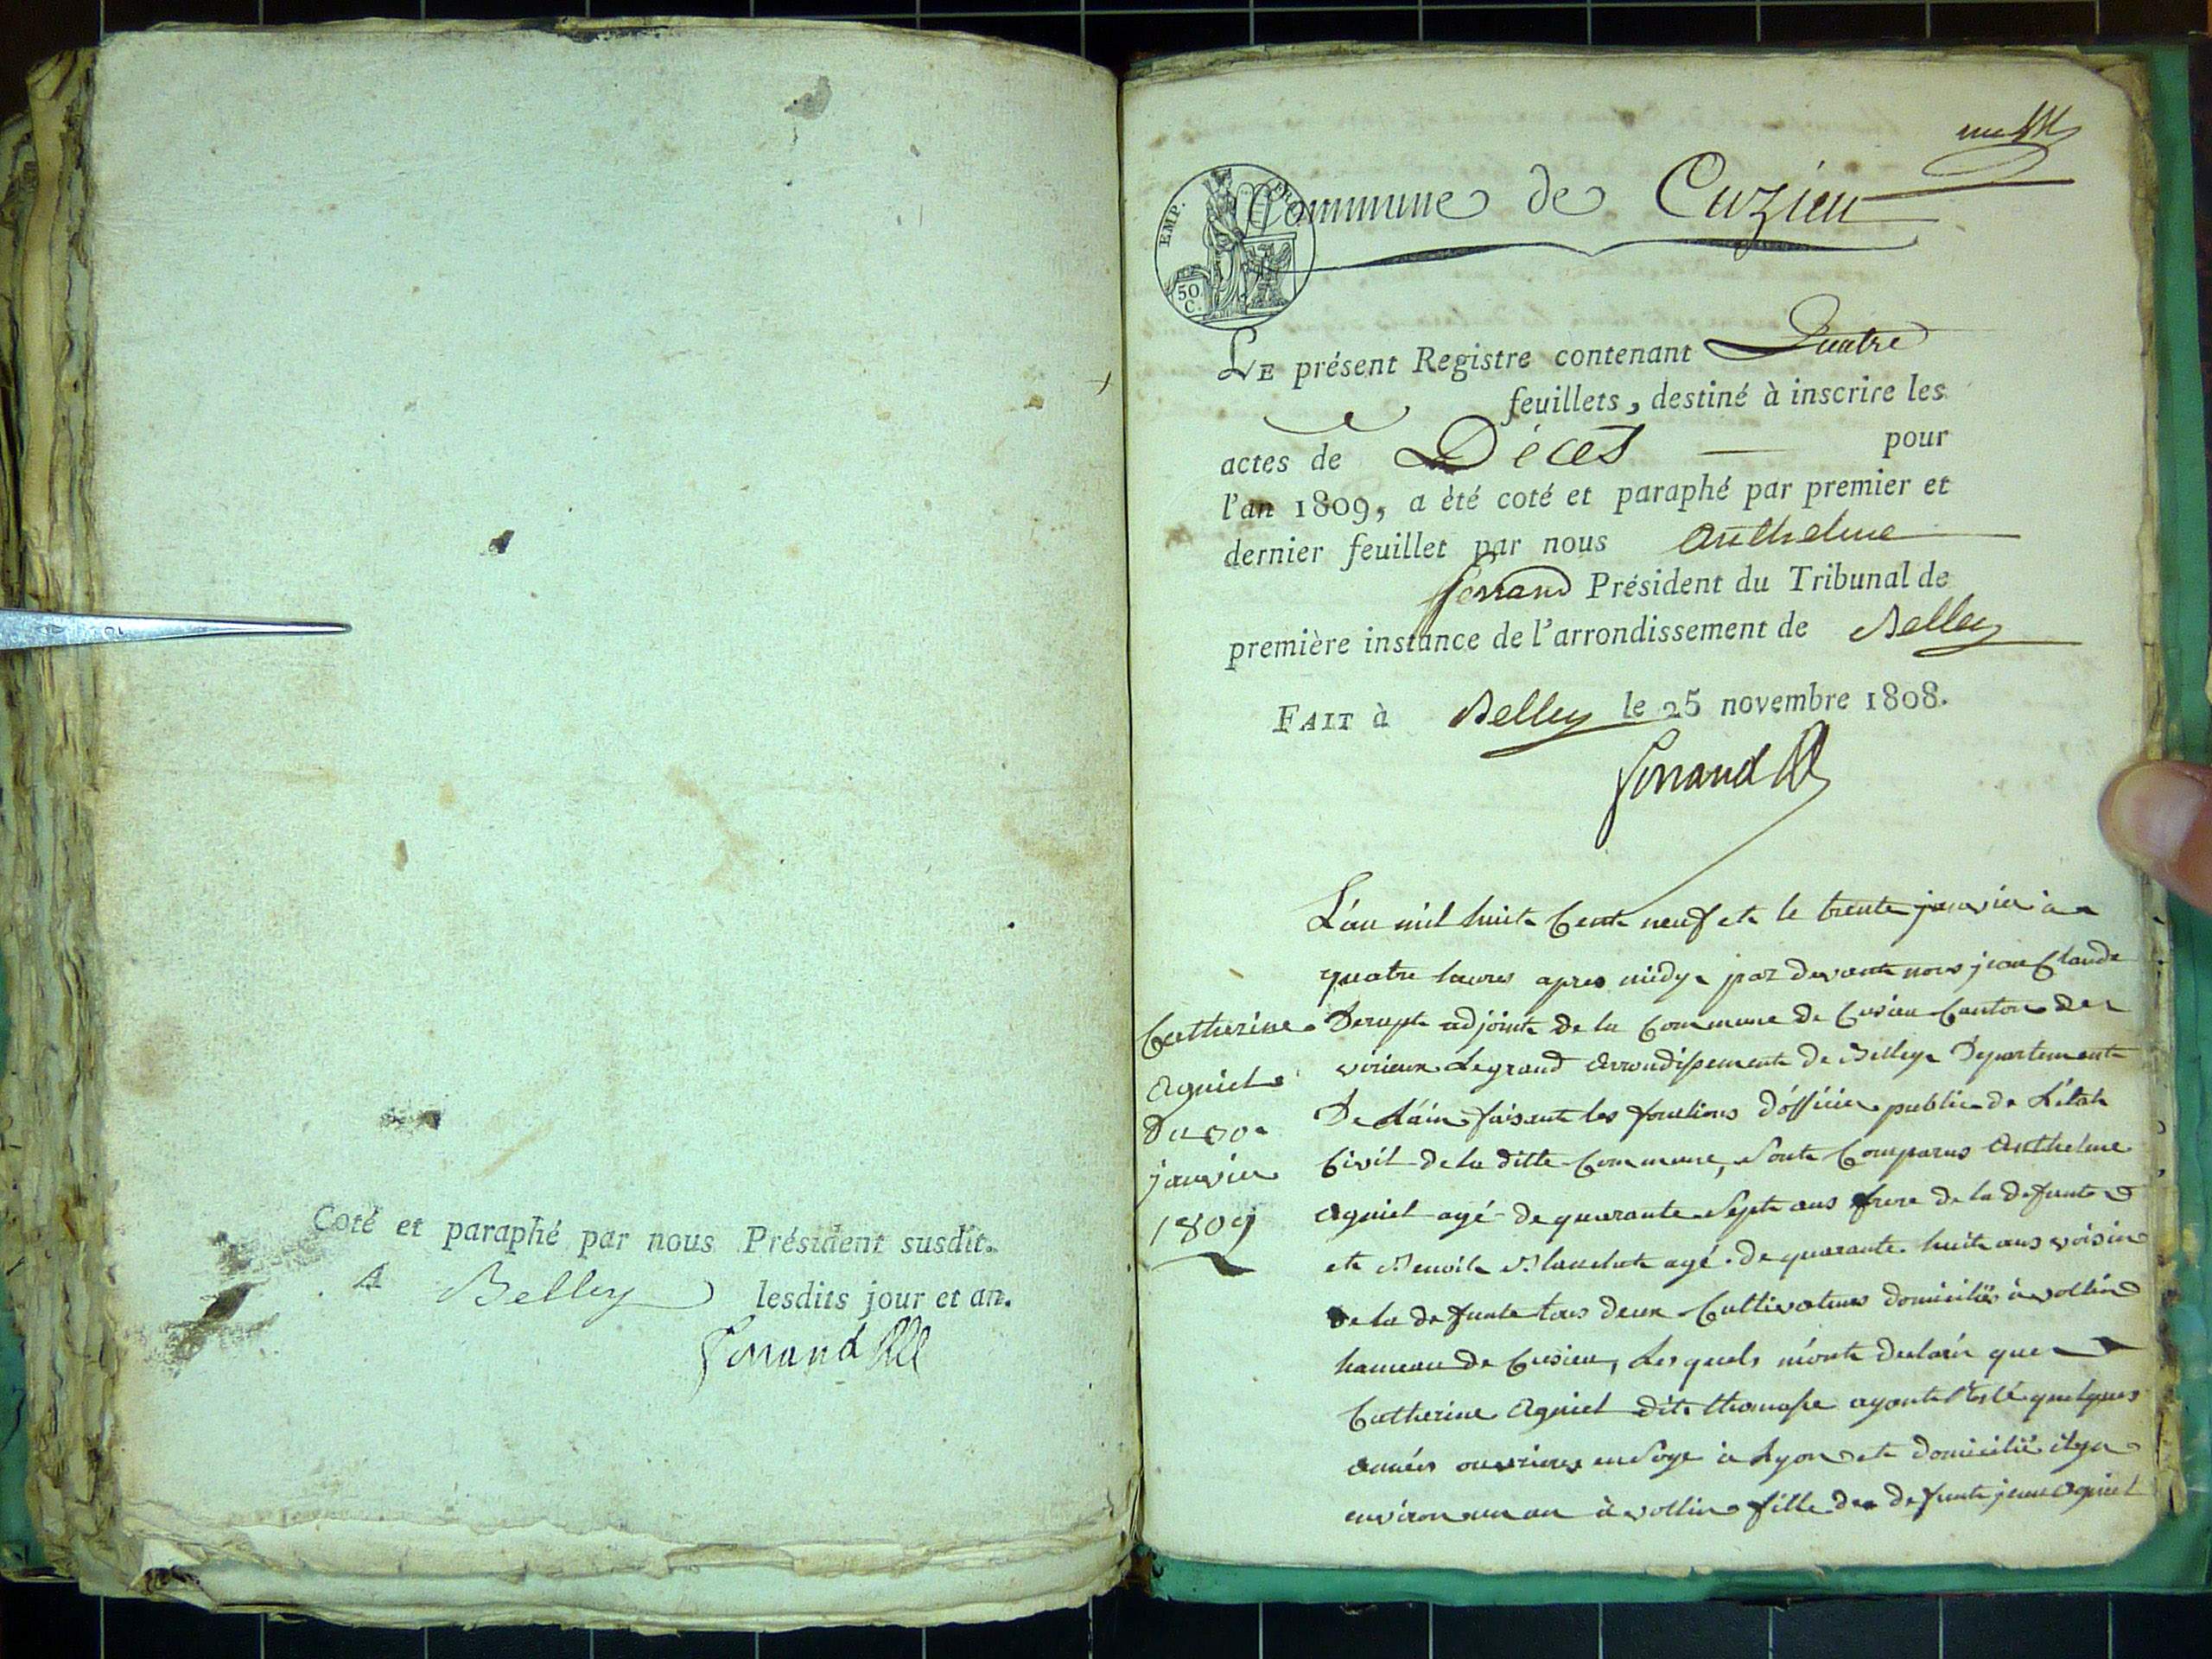 Coté et paraphé par nous Président susdit.
A Belley lesdits jour et an.
Ferrand
une
EMP. FR.
50
C.
Commune de Cuzieu
LE présent Registre contenant Quatre
feuillets, destiné à inscrire les
actes de Décès — pour
l'an 1809, a été coté et paraphé par premier et
dernier feuillet par nous Anthelme
Ferrand Président du Tribunal de
première instance de l'arrondissement de Belley
FAIT à Belley le 25 novembre 1808.
Ferrand
Catherine
Aguiet
Du 30
janvier
1809
L'an mil huit Cent neuf et le trente janvier à
quatre heures apres midy par devant nous jean Claude
Derupt adjoint de la Commune de Cusieu Canton de
virieux Legrand Arrondissement de Belley Departement
De L'ain faisant les fonctions d'officier public de L'état
Civil de la ditte Commune, Sont Comparus Anthelme
Aguiet agé de quarante Sept ans frere de la defunte
et Benoit Blanchet agé de quarante huit ans voisin
De la defunte tous deux Cultivateurs domiciliés à vollin
hameau de Cusieu, Lesquels m'ont declaré que
Catherine Aguiet dite thomasse ayant resté quelques
années ouvriere en Soye à Lyon et domicilié il y a
environ un an à vollin fille de defunt jean Aguiet